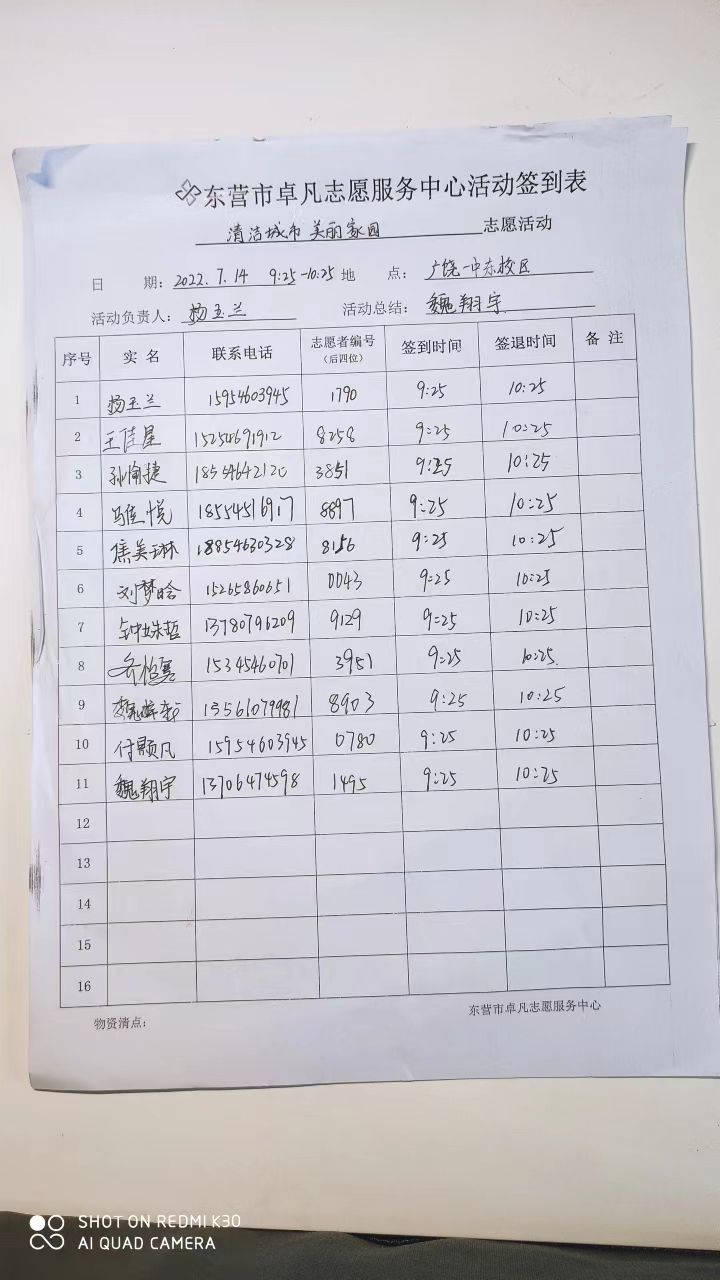 东营市卓凡志愿服务中心活动签到表
清洁城市 美丽家园 志愿活动
日 期: 2022.7.14 9:25-10:25 地 点: 广饶一中东校区
活动负责人: 杨玉兰 活动总结: 魏翔宇
序号 实 名 联系电话 志愿者编号(后四位) 签到时间 签退时间 备 注
1 杨玉兰 15954603945 1790 9:25 10:25
2 王佳星 15254691912 8258 9:25 10:25
3 孙愉捷 3851 9:25 10:25
4 马佳悦 18554516917 8897 9:25 10:25
5 焦美琳 18854630328 8156 9:25 10:25
6 刘梦晗 15265860651 0043 9:25 10:25
7 钟姝哲 13780796209 9129 9:25 10:25
8 15345460701 3951 9:25 10:25
9 13561079981 8903 9:25 10:25
10 付颢凡 15954603945 0780 9:25 10:25
11 魏翔宇 13706474598 1495 9:25 10:25
12
13
14
15
16
物资清点: 东营市卓凡志愿服务中心
SHOT ON REDMI K30
AI QUAD CAMERA